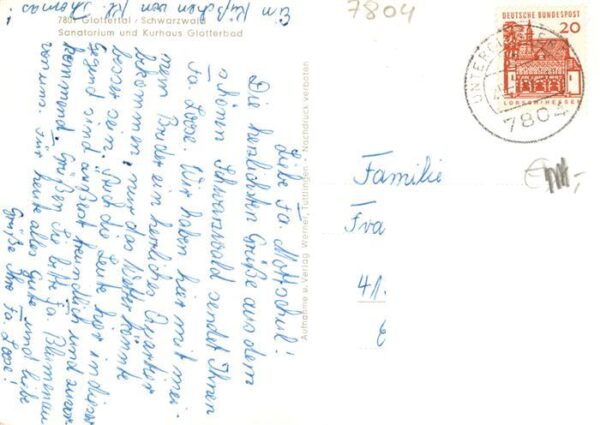 7801 Glottertal · Schwarzwald
Sanatorium und Kurhaus Glotterbad
Liebe Fa. Mottschul!
Die herzlichsten Grüße aus dem
schönen Schwarzwald sendet Ihnen
Fa. Loose. Wir haben hier mit mei-
nem Bruder ein herrliches Quartier
bekommen, nur das Wetter könnte
besser sein. Und die Leute hier in dieser
Gegend sind äußerst freundlich und zuvor-
kommend. Grüßen Sie bitte Fa. Blumenau
von uns. Für heute alles Gute und liebe
Grüße Ihre Fa. Loose!
Ein Küßchen von kl. Thomas!
Aufnahme u. Verlag Werner, Tuttlingen · Nachdruck verboten
7804
DEUTSCHE BUNDESPOST
20
LORSCH/HESSEN
7804
Familie
Fva
41.
E